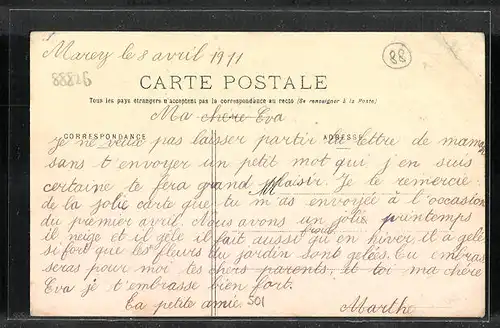 Marey le 8 avril 1911
88
88826
CARTE POSTALE
Tous les pays étrangers n'acceptent pas la correspondance au recto (Se renseigner à la Poste)
Ma chère Eva
CORRESPONDANCE
ADRESSE
je ne veux pas laisser partir la lettre de maman
sans t'envoyer un petit mot qui j'en suis
certaine te fera grand plaisir. Je te remercie
de la jolie carte que tu m'as envoyée à l'occasion
du premier avril. Nous avons un joli printemps
il neige et il gèle il fait aussi froid qu'en hiver, il a gelé
si fort que les fleurs du jardin sont gelées. Tu embras
seras pour moi tes chers parents, et toi ma chère
Eva je t'embrasse bien fort.
Ta petite amie
501
Marthe